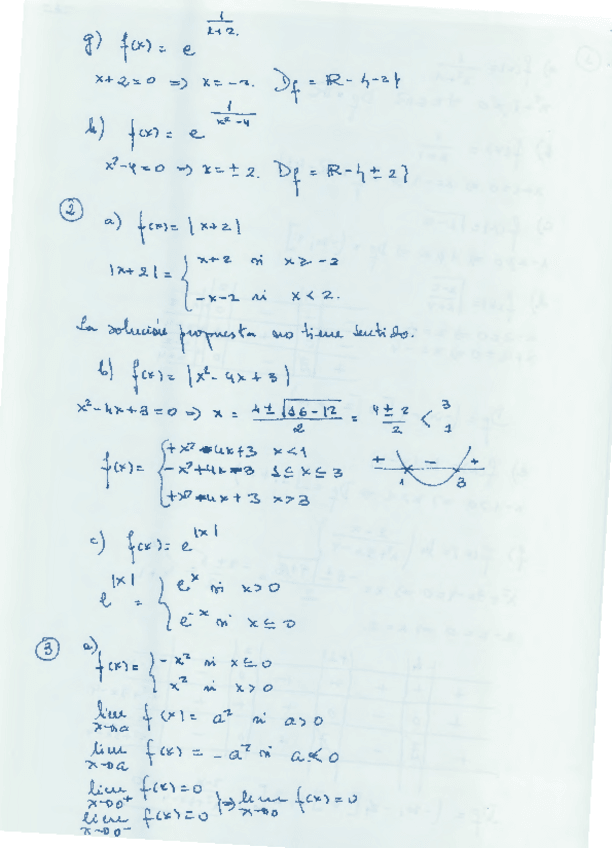 g) f(x) = e^{\frac{1}{x+2}}.
x+2=0 => x=-2. D_f = R - {-2}
h) f(x) = e^{\frac{1}{x²-4}}
x²-4=0 => x=±2. D_f = R - {±2}
② a) f(x) = |x+2|
|x+2| = { x+2 si x ≥ -2
-x-2 si x < 2.
La solución propuesta no tiene sentido.
b) f(x) = |x²-4x+3|
x²-4x+3=0 => x = \frac{4±\sqrt{16-12}}{2} = \frac{4±2}{2} < 3 1
f(x) = { +x²-4x+3 x<1
-x²+4x-3 1≤x≤3
+x²-4x+3 x>3
+ - +
1 3
c) f(x) = e^{|x|}
e^{|x|} = { e^x si x>0
e^{-x} si x≤0
③ a)
f(x) = { -x² si x≤0
x² si x>0
lim_{x→a} f(x) = a² si a>0
lim_{x→a} f(x) = -a² si a<0
lim_{x→0⁺} f(x)=0
lim_{x→0⁻} f(x)=0 } => lim_{x→0} f(x)=0